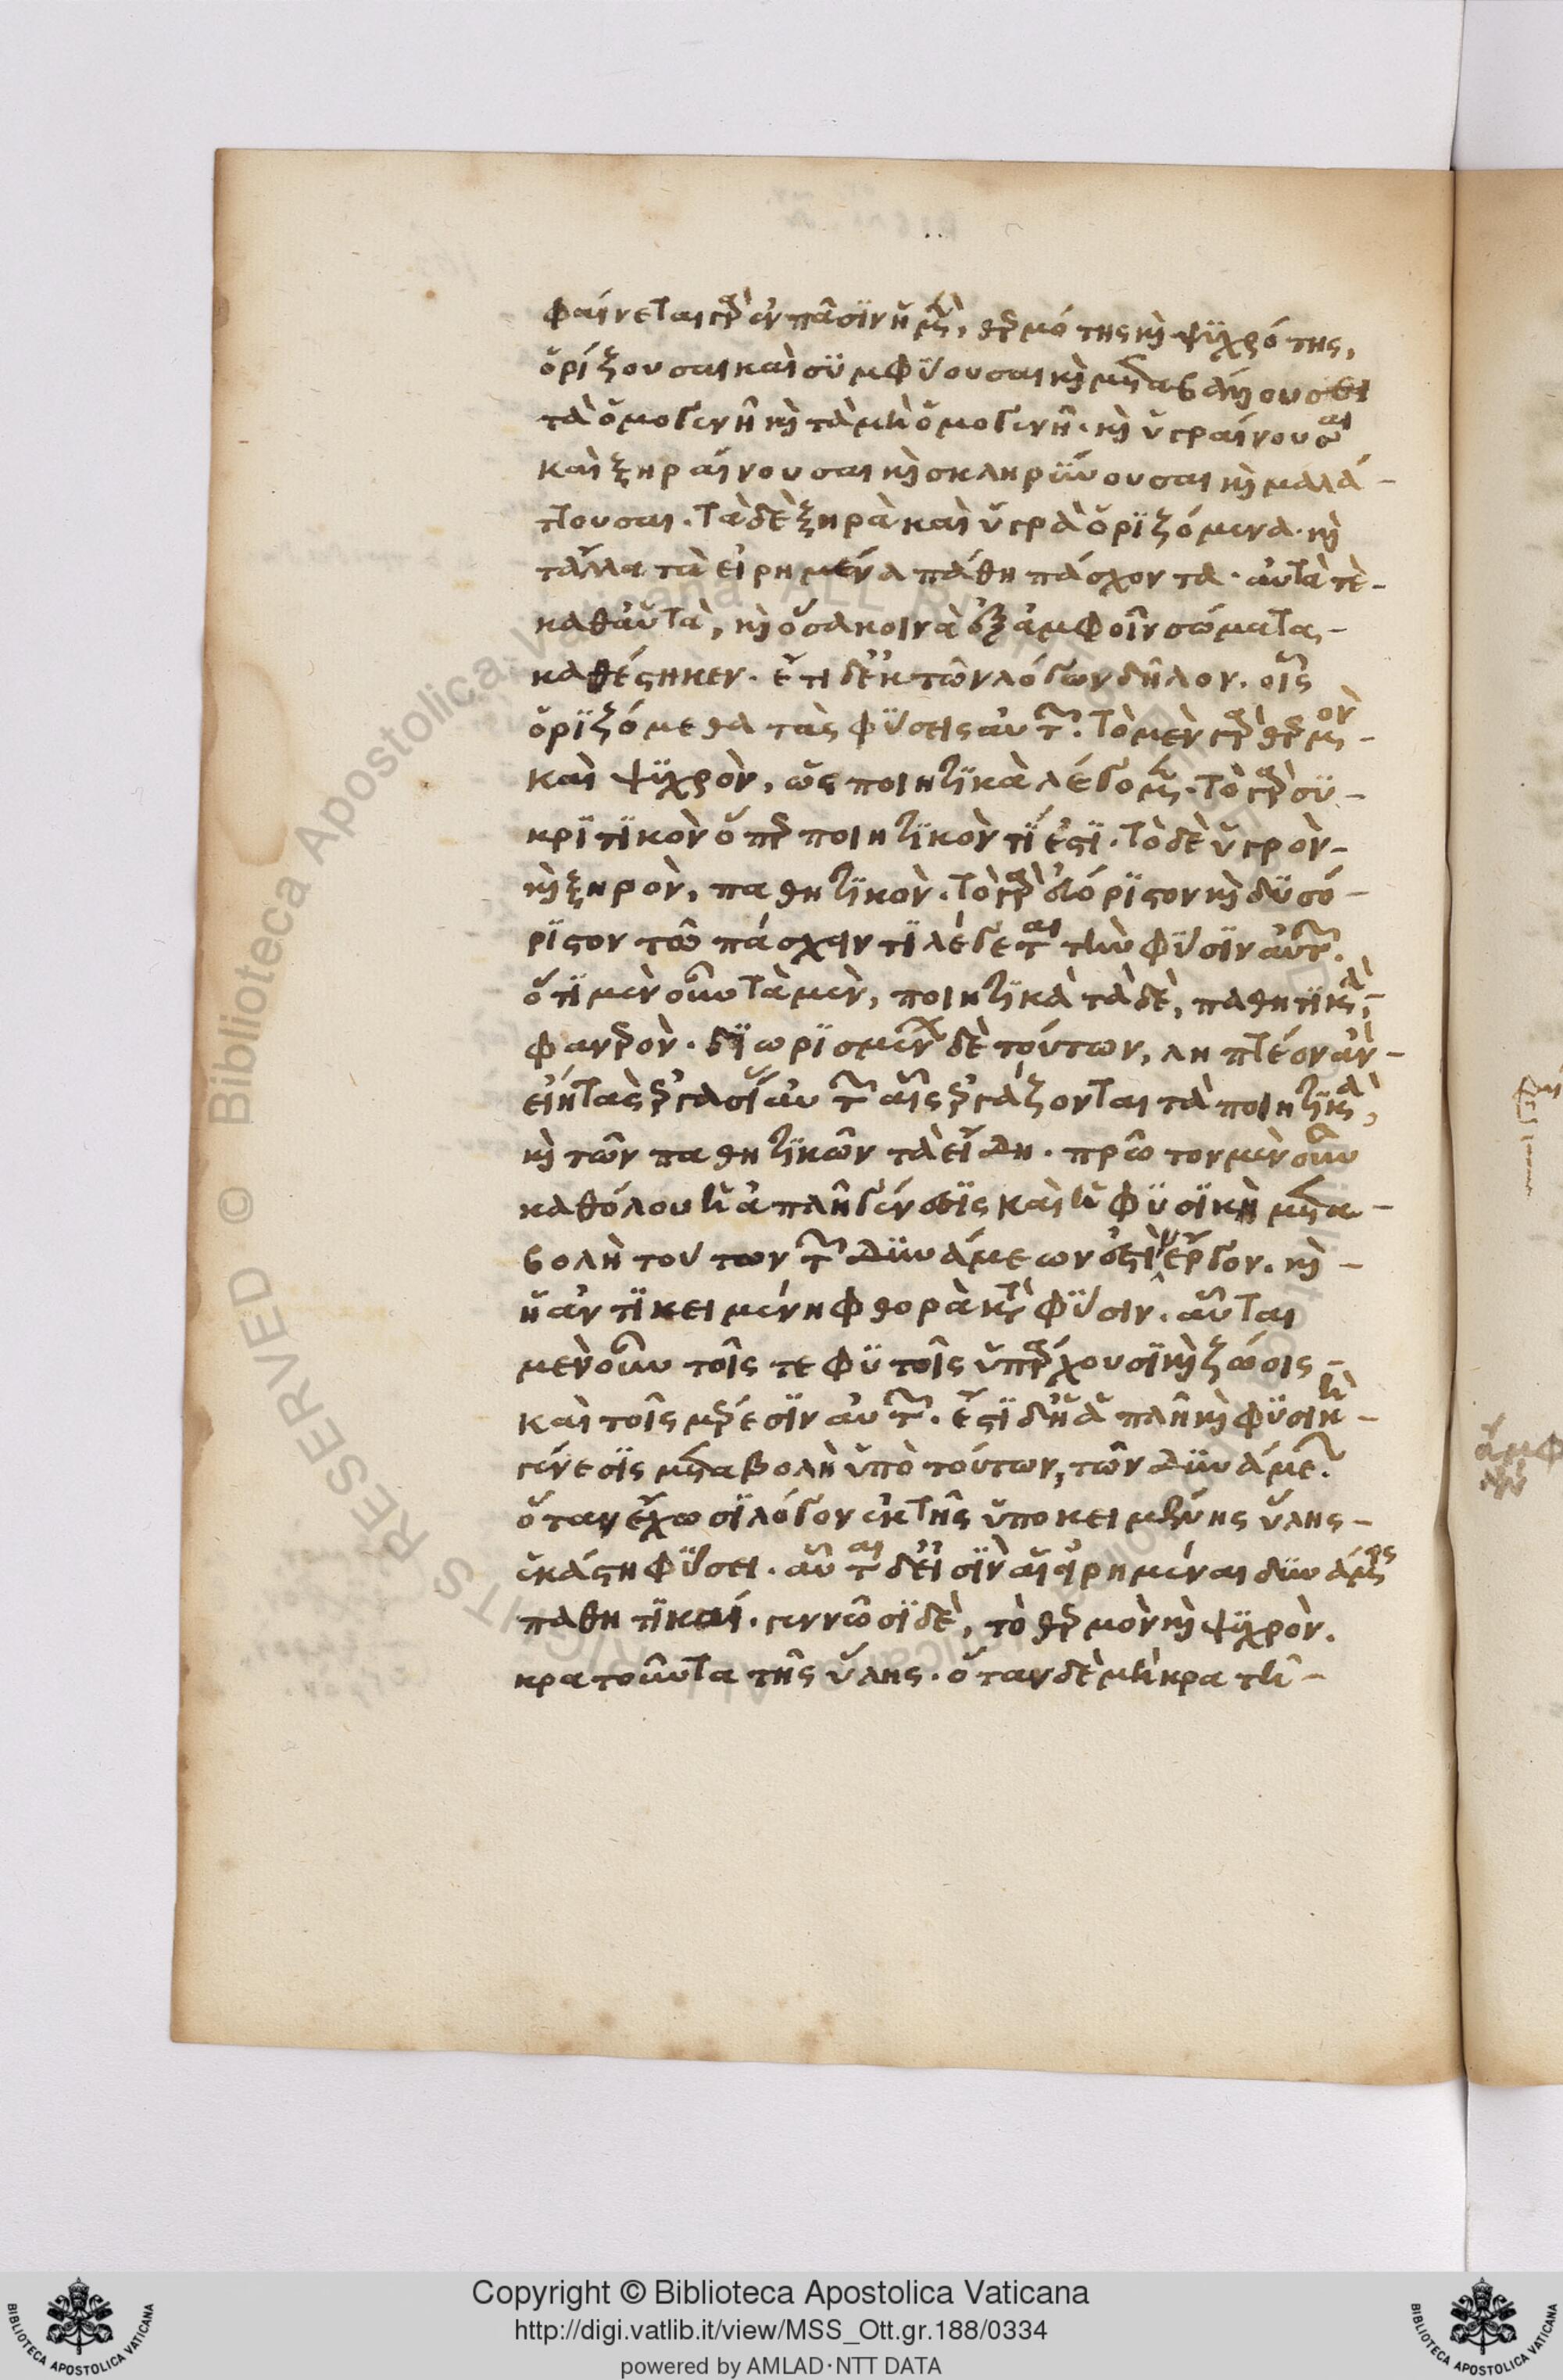 φαίνεται γὰρ ἐν πᾶσιν ἡ μὲν, θερμότης καὶ ψϋχρότης,
ὁρίζουσαι καὶ σϋμφϋουσαι καὶ μεταβάλλουσαι
τὰ ὁμογενῆ καὶ τὰ μὴ ὁμογενῆ. καὶ ὑγραίνουσαι
καὶ ξηραίνουσαι καὶ σκληρϋνουσαι καὶ μαλά-
ττουσαι. τὰ δὲ ξηρὰ καὶ ὑγρὰ ὁρϊζόμενα. καὶ
τἄλλα τὰ εἰρημένα πάθη πάσχοντα. αὐτά τὲ-
καθ αὑτὰ, καὶ ὅσα κοινὰ ἐξ ἀμφοῖν σώματα,-
καθέστηκεν. ἔτι δ' ἐκ τῶν λόγων δῆλον. οἷς
ὁρϊζόμεθα τὰς φϋσεις αὐτῶν. τὸ μὲν γὰρ θερμὸν-
καὶ ψϋχρὸν, ὡς ποιητϊκὰ λέγομεν. τὸ γὰρ σϋ-
κρϊτϊκὸν ὅπερ ποιητϊκόν τϊ ἐστϊ. τὸ δὲ ὑγρὸν-
καὶ ξηρὸν, παθητϊκὸν. τὸ γὰρ εὐόρϊστον καὶ δϋσό-
ρϊστον τῶ πάσχειν τϊ λέγεται τὴν φϋσϊν αὐτῶν.
ὅτϊ μὲν οὖν τὰ μὲν, ποιητϊκὰ τὰ δὲ, παθητϊκὰ,-
φανερὸν. δϊωρϊσμένων δὲ τούτων, ληπτέον ἂν-
εἴη τὰς ἐργασίας αὐτῶν αἷς ἐργάζονται τὰ ποιητϊκὰ,
καὶ τῶν παθητϊκῶν τὰ εἴδη. πρῶτον μὲν οὖν
καθόλου ἡ ἁπλῆ γένεσϊς καὶ ἡ φϋσϊκὴ μετα-
βολὴ τούτων τῶν δϋνάμεων ἐστὶν ἔργον. καὶ-
ἡ ἀντϊκειμένη φθορὰ κατὰ φϋσιν. αὗται
μὲν οὖν τοῖς τε φϋτοῖς ὑπάρχουσϊ καὶ ζώοις-
καὶ τοῖς μέρεσϊν αὐτῶν. ἔστϊ δ' ἡ ἁπλῆ καὶ φϋσικὴ-
γένεσϊς μεταβολὴ ὑπὸ τούτων, τῶν δϋνάμεων.
ὅταν ἔχωσϊ λόγον ἐκ τῆς ὑποκειμένης ὕλης-
ἑκάστη φϋσει. αὗται δ' εἰσϊν αἱ εἰρημέναι δϋνάμεις
παθητϊκαί. γεννῶσϊ δὲ, τὸ θερμὸν καὶ ψϋχρὸν.
κρατοῦντα τῆς ὕλης. ὅταν δὲ μὴ κρατῆ-
Copyright © Biblioteca Apostolica Vaticana
http://digi.vatlib.it/view/MSS_Ott.gr.188/0334
powered by AMLAD·NTT DATA